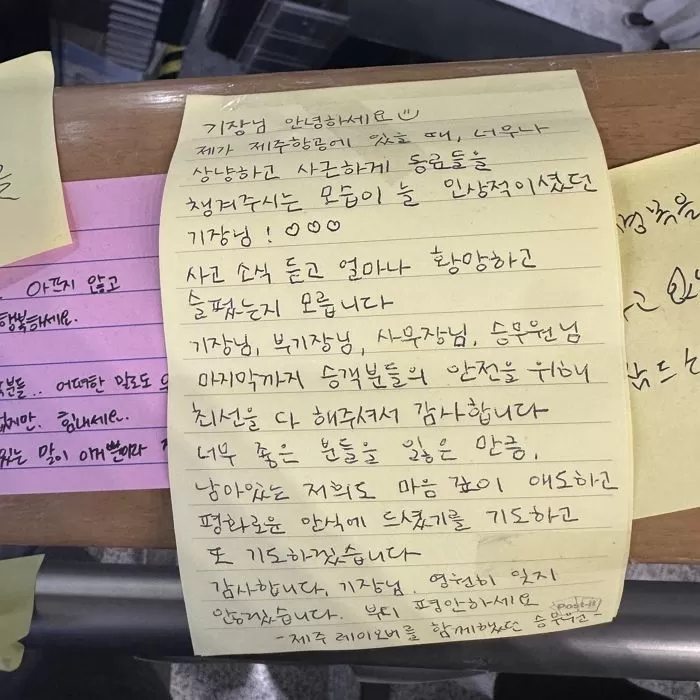 기장님 안녕하세요
제가 제주항공에 있을 때, 너무나
상냥하고 사근하게 동료들을
챙겨주시는 모습이 늘 인상적이셨던
기장님! ♡♡♡
사고 소식 듣고 얼마나 황망하고
슬펐는지 모릅니다
기장님, 부기장님, 사무장님, 승무원님
마지막까지 승객분들의 안전을 위해
최선을 다 해주셔서 감사합니다
너무 좋은 분들을 잃은 만큼,
남아있는 저희도 마음 깊이 애도하고
평화로운 안식에 드셨기를 기도하고
또 기도하겠습니다
감사합니다, 기장님. 영원히 잊지
않겠습니다. 부디 평안하세요
Post-it
-제주 레이오버를 함께했던 승무원-
아프지 않고
행복하세요.
분들.. 어떠한 말로도
없지만. 힘내세요.
있는 말이 이거뿐이라